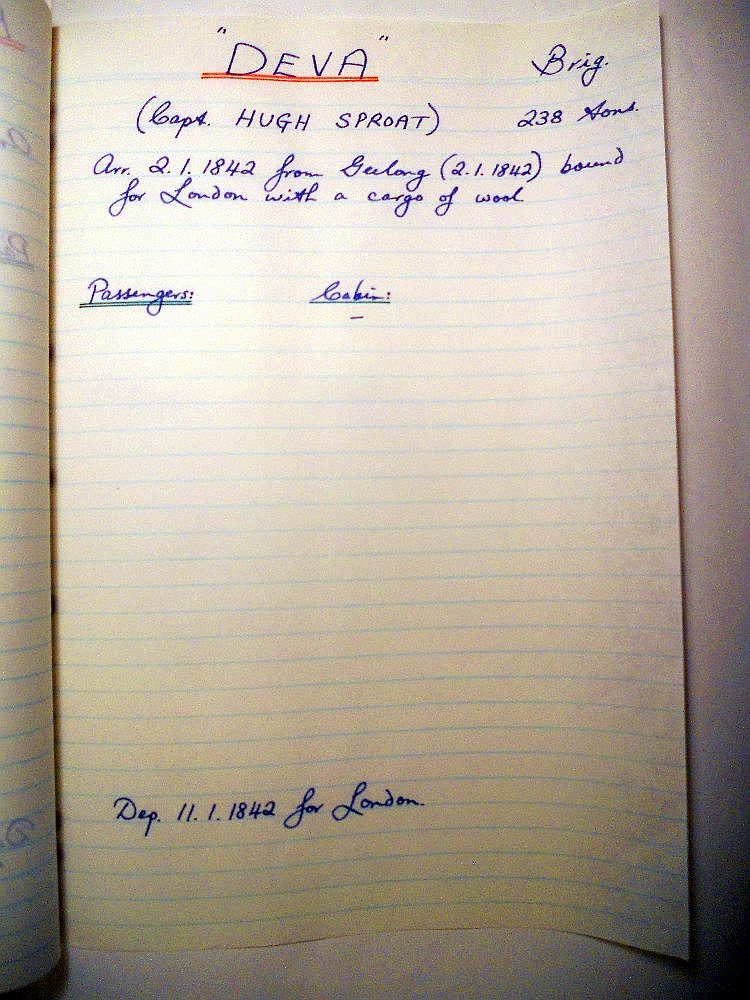 "DEVA" Brig.
(Capt. HUGH SPROAT) 238 tons.
Arr. 2.1.1842 from Geelong (2.1.1842) bound
for London with a cargo of wool
Passengers: Cabin:
–
Dep. 11.1.1842 for London.